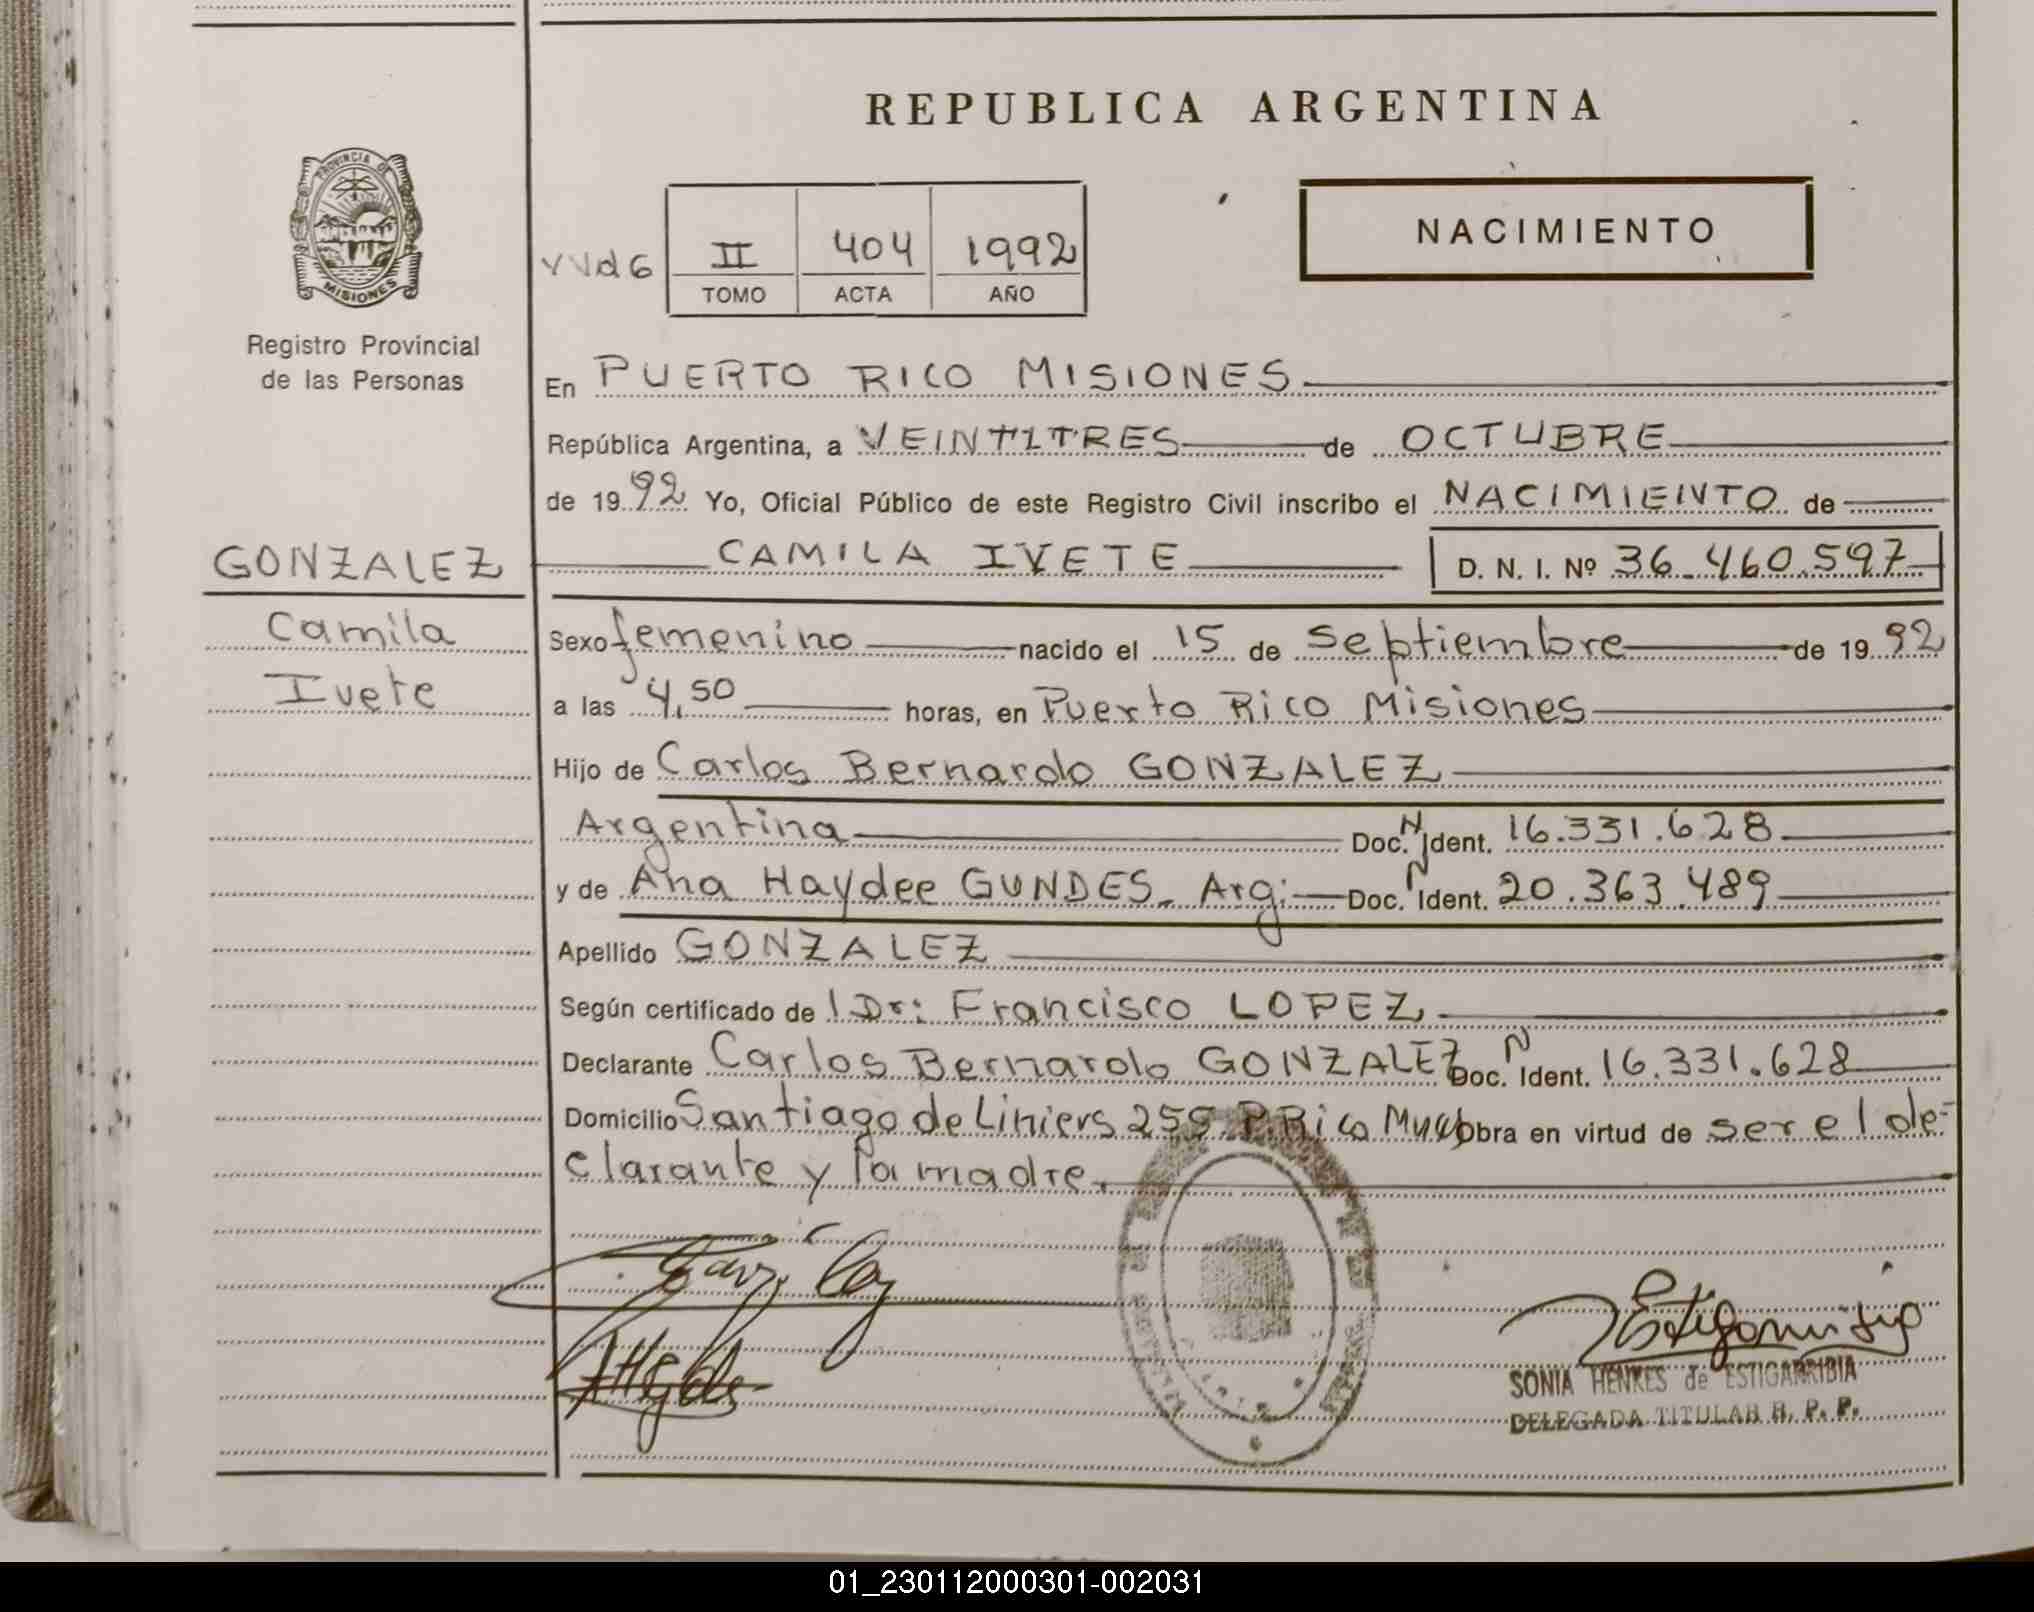 REPUBLICA ARGENTINA
PROVINCIA DE
MISIONES
Registro Provincial
de las Personas
NACIMIENTO
II 404 1992
TOMO ACTA AÑO
En PUERTO RICO MISIONES
República Argentina, a VEINTITRES de OCTUBRE
de 1992 Yo, Oficial Público de este Registro Civil inscribo el NACIMIENTO de
GONZALEZ
Camila
Ivete
CAMILA IVETE D. N. I. Nº 36.460.597
Sexo femenino nacido el 15 de Septiembre de 1992
a las 4,50 horas, en Puerto Rico Misiones
Hijo de Carlos Bernardo GONZALEZ
Argentina Doc. N Ident. 16.331.628
y de Ana Haydee GUNDES. Arg: Doc. N Ident. 20.363.489
Apellido GONZALEZ
Según certificado de l Dr: Francisco LOPEZ
Declarante Carlos Bernardo GONZALEZ Doc. N Ident. 16.331.628
Domicilio Santiago de Liniers P. Rico obra en virtud de ser el de-
clarante y la madre.
SONIA HENKES de ESTIGARRIBIA
DELEGADA TITULAR R. P. P.
01_230112000301-002031